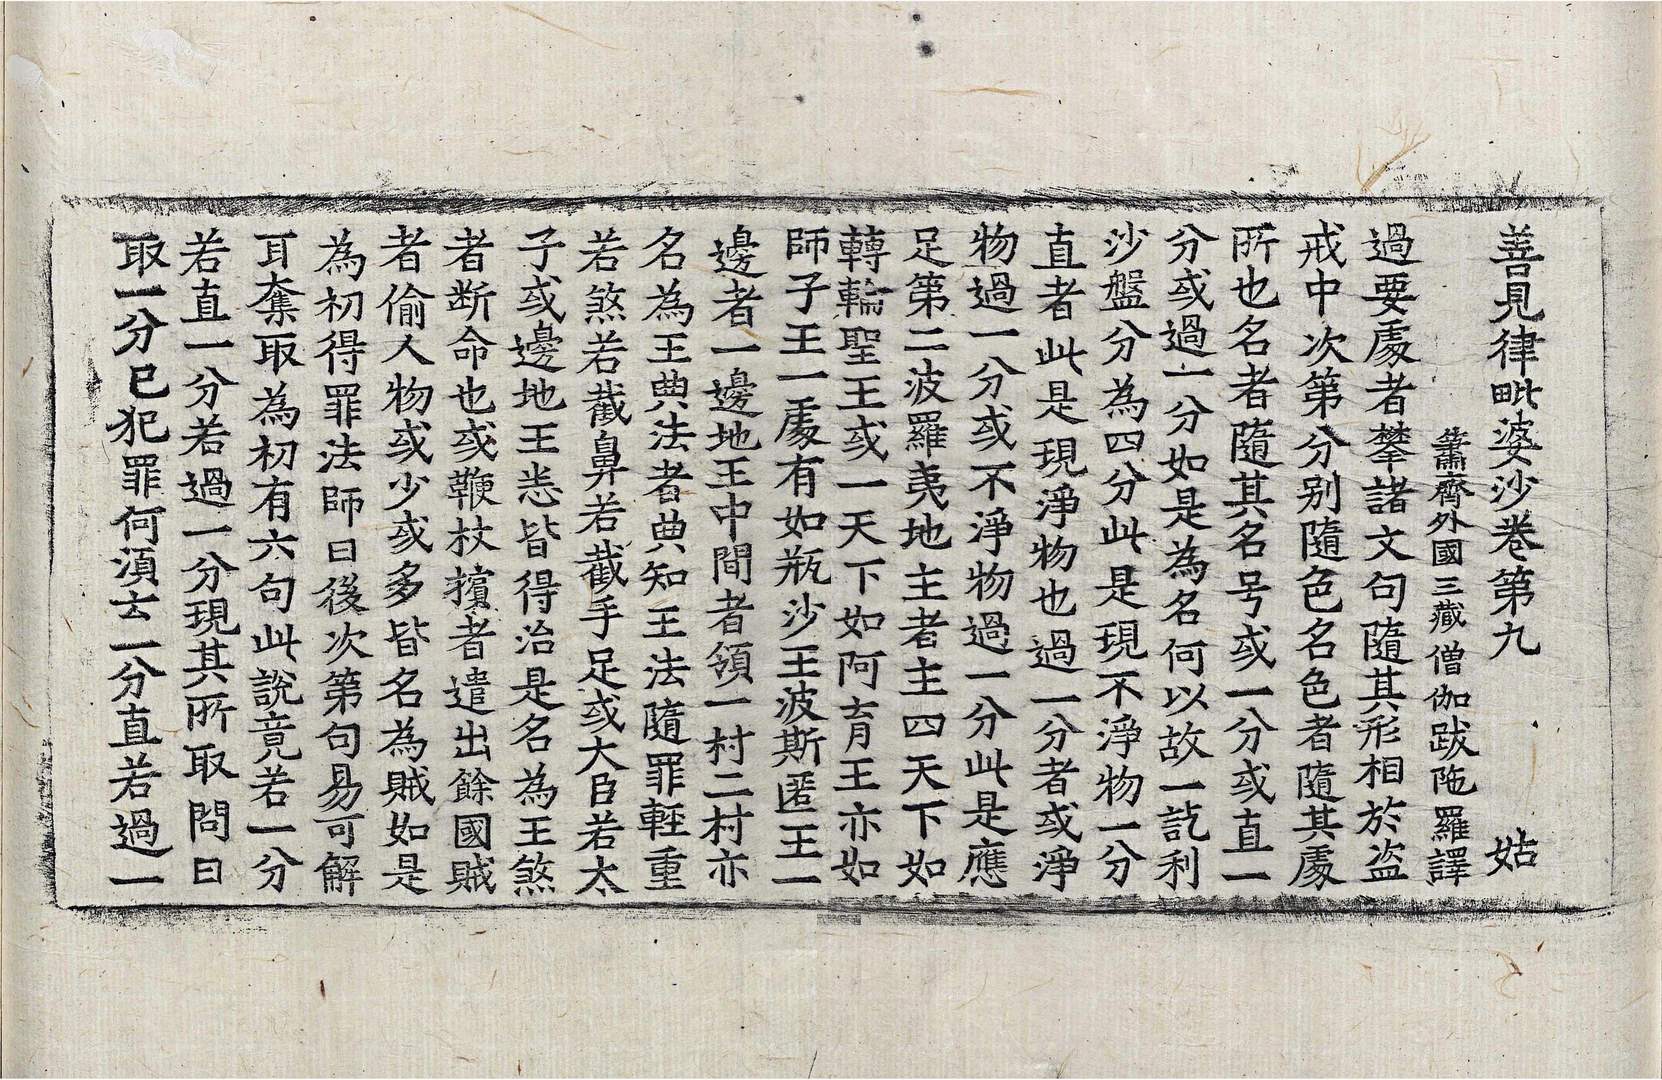 善見律毗婆沙卷第九　姑
蕭齊外國三藏僧伽跋陁羅譯
過要處者攀諸文句隨其形相於盜
戒中次第分别隨色名色者隨其處
所也名者隨其名号或一分或直一
分或過一分如是為名何以故一訖利
沙盤分為四分此是現不淨物一分
直者此是現淨物也過一分者或淨
物過一分或不淨物過一分此是應
足第二波羅夷地主者主四天下如
轉輪聖王或一天下如阿育王亦如
師子王一處有如瓶沙王波斯匿王一
邊者一邊地王中間者領一村二村亦
名為王典法者典知王法隨罪輊重
若煞若截鼻若截手足或大臣若太
子或邊地王恙皆得治是名為王煞
者断命也或鞭杖擯者遣出餘國賊
者偷人物或少或多皆名為賊如是
為初得罪法師曰後次第句易可解
耳奪取為初有六句此說竟若一分
若直一分若過一分現其所取問曰
取一分已犯罪何湏去一分直若過一